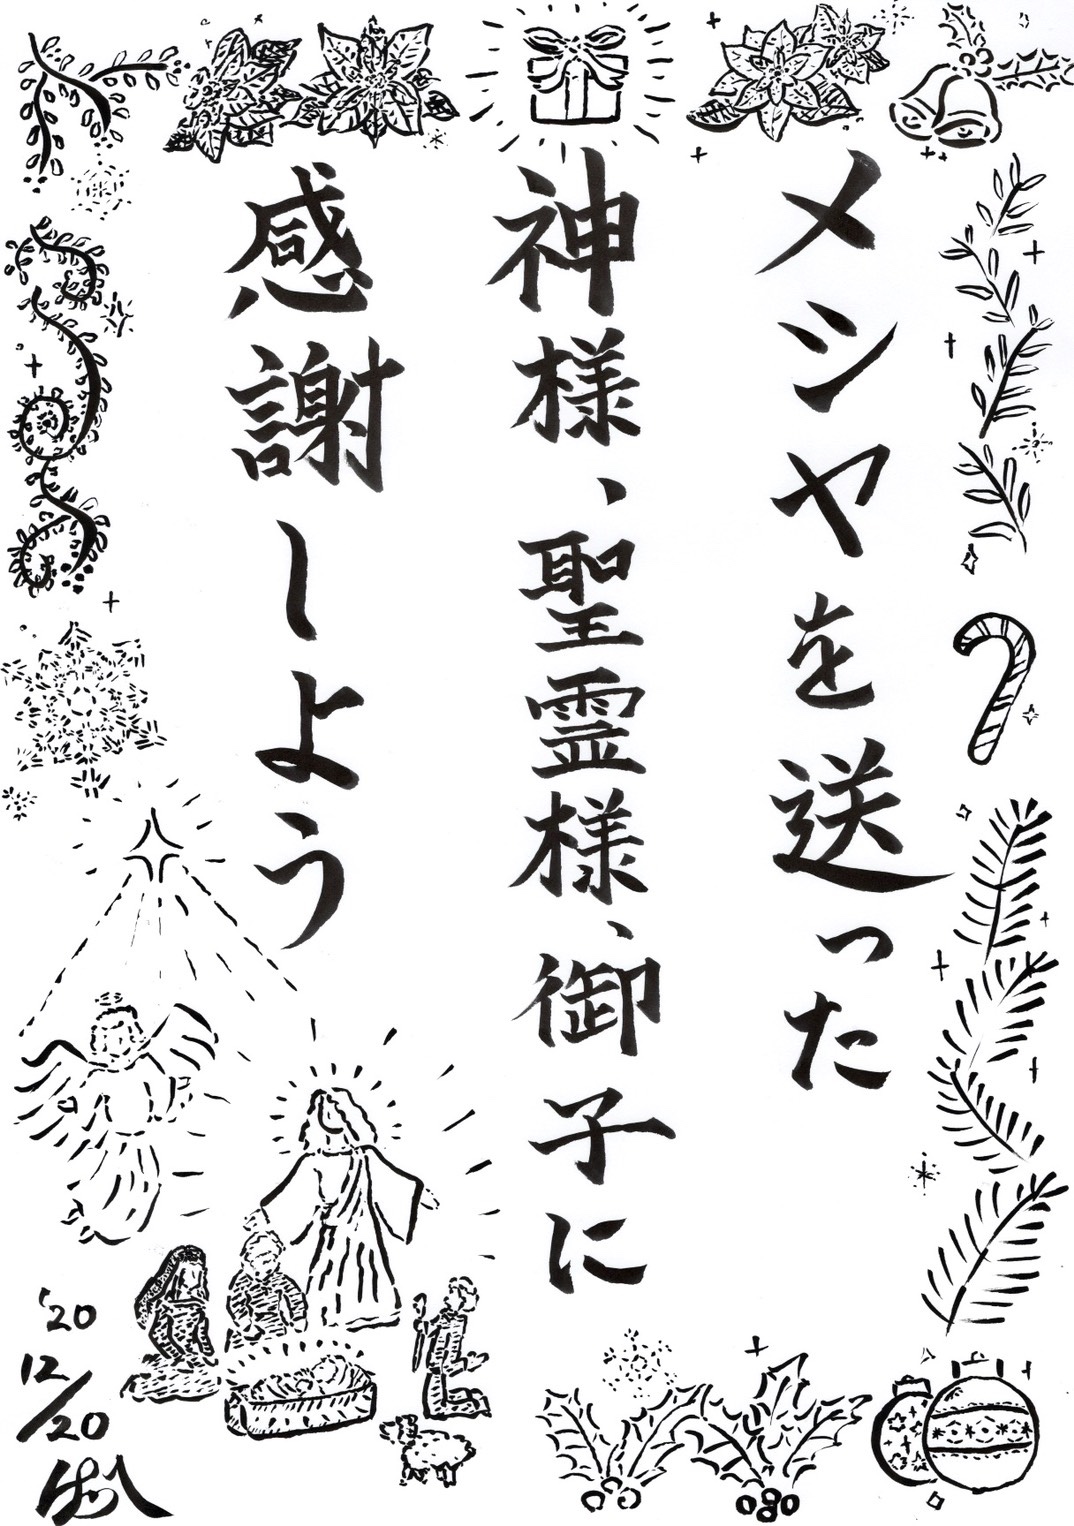 メシヤを送った
神様、聖霊様、御子に
感謝しよう
'20
12/20